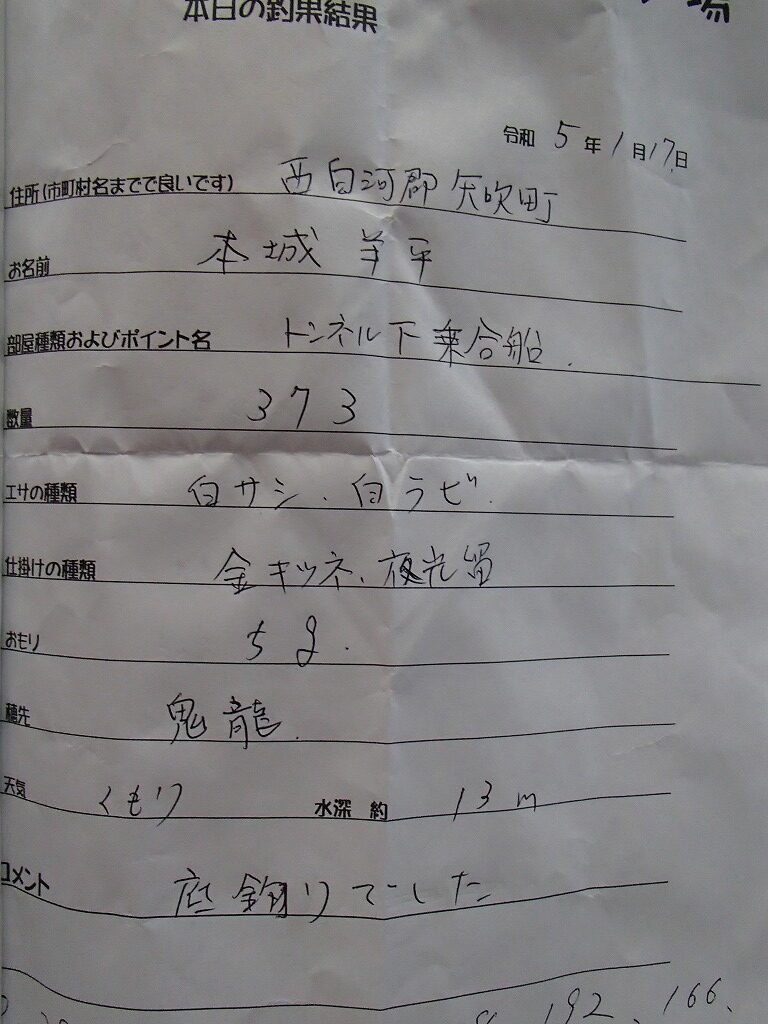 場
本日の釣果結果
令和 5年1月17日
住所(市町村名までで良いです) 西白河郡矢吹町
お名前 本城 羊平
部屋種類およびポイント名 トンネル下乗合船.
数量 373
エサの種類 白サシ、白ラビ.
仕掛けの種類 金キツネ、夜光留
おもり 5g.
穂先 鬼龍.
天気 くもり 水深 約 13m
コメント 底釣りでした
192、166、